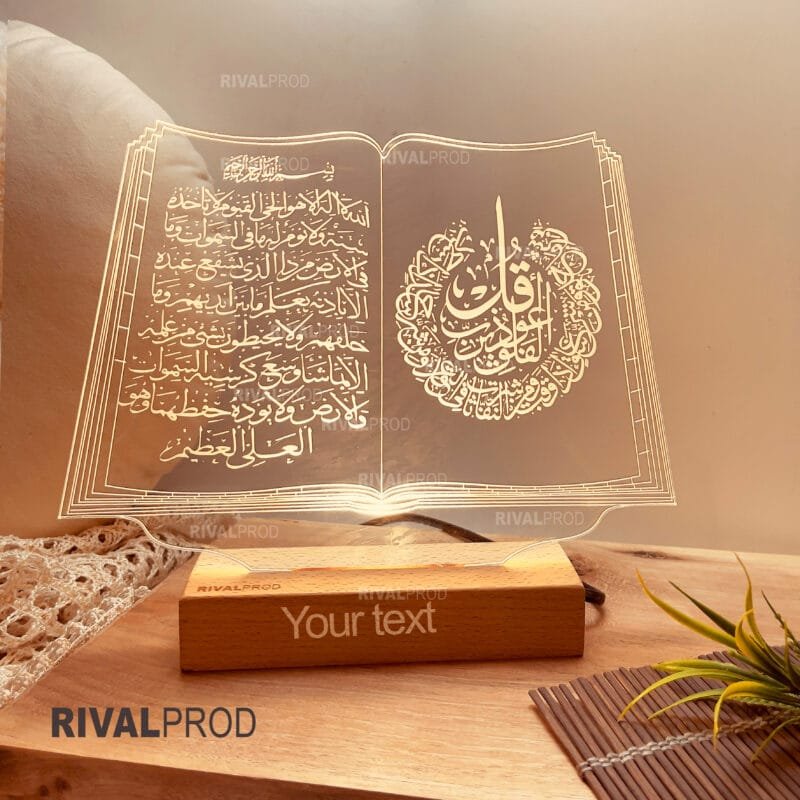 RIVALPROD
RIVALPROD
بسم الله الرحمن الرحيم
الله لا اله الا هو الحي القيوم لا تأخذه
سنة ولا نوم له ما في السموات وما
في الارض من ذا الذي يشفع عنده
الا باذنه يعلم ما بين ايديهم وما
خلفهم ولا يحيطون بشيء من علمه
الا بما شاء وسع كرسيه السموات
والارض ولا يؤده حفظهما وهو
العلي العظيم
قل
اعوذ برب
الفلق
RIVALPROD
RIVALPROD
RIVALPROD
RIVALPROD
RIVALPROD
Your text
RIVALPROD